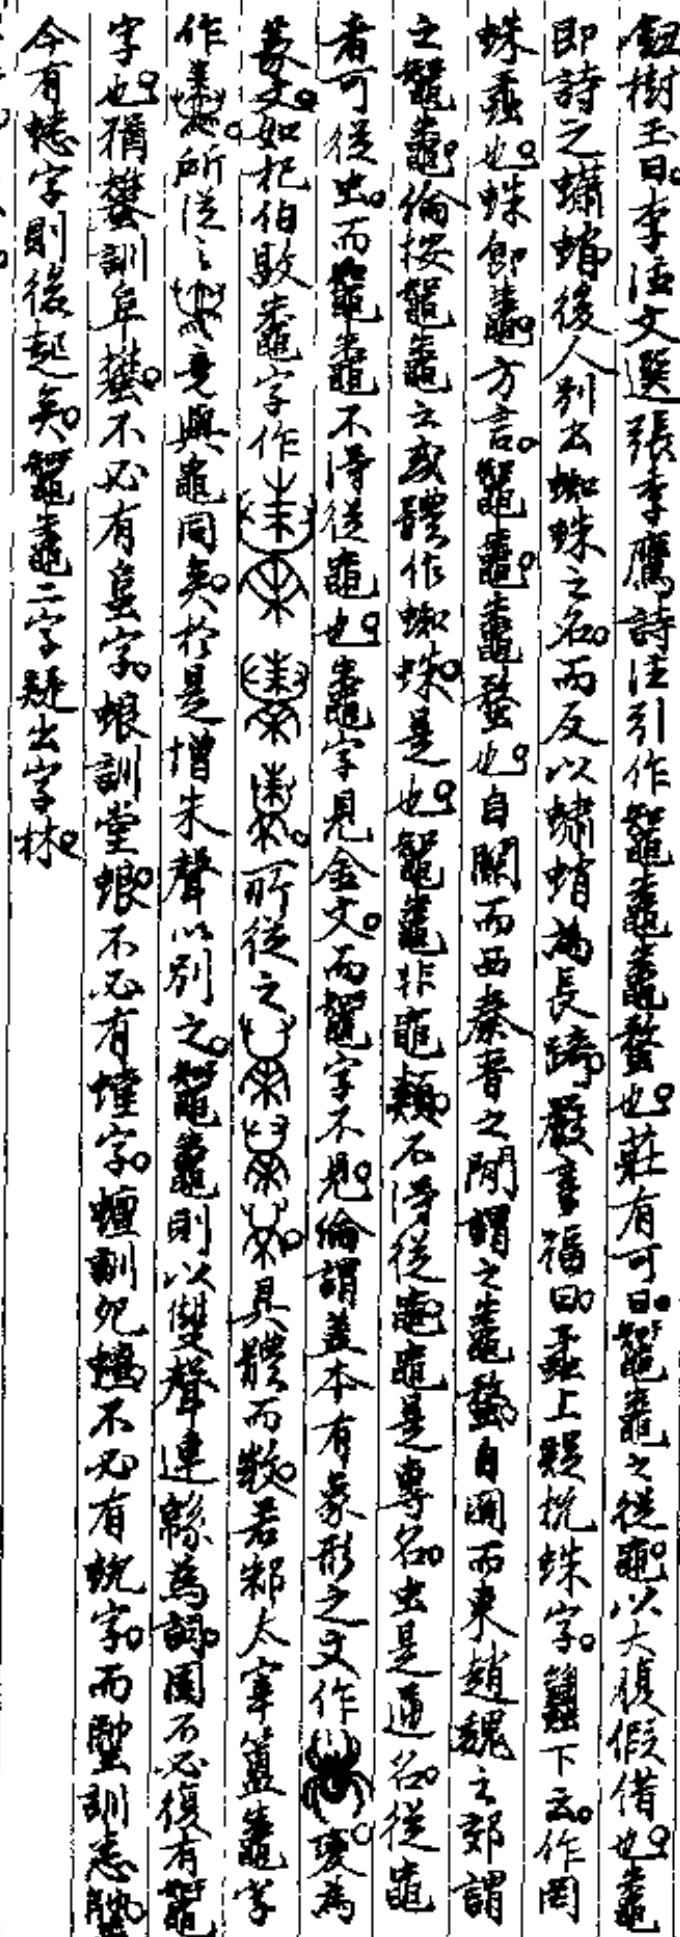 鈕樹玉曰。李注文選張季鷹詩注引作鼅鼄鼄蝥也。莊有可曰。鼅鼄之從黽。以大腹假借也。鼄
即詩之蠨蛸。後人別出蜘蛛之名。而反以蠨蛸為長踦。嚴章福曰。蟊上疑挩蛛字。䘆下云。作罔
蛛蟊也。蛛即鼄。方言。鼅鼄。鼄蝥也。自關而西秦晉之間謂之鼄蝥。自關而東趙魏之郊謂
之鼅鼄。倫按鼅鼄之或體作蜘蛛。是也。鼅鼄非黽類。不得從黽。黽是專名。虫是通名。從黽
者可從虫。而鼅鼄不得從黽也。鼄字見金文。而鼅字不見。倫謂蓋本有象形之文作 。變為
篆文。如杞伯敃鼄字作 。所從之 。具體而微。若邾太宰簠鼄字
作 。所從之 竟與黽同矣。於是增朱聲以別之。鼅鼄則以雙聲連緜為詞。固不必復有鼅
字也。猶 訓阜 。不必有 字。蜋訓堂蜋。不必有螳字。 訓 。不必有 字。而 訓悉 。
今有蟋字則後起矣。鼅鼄二字疑出字林。